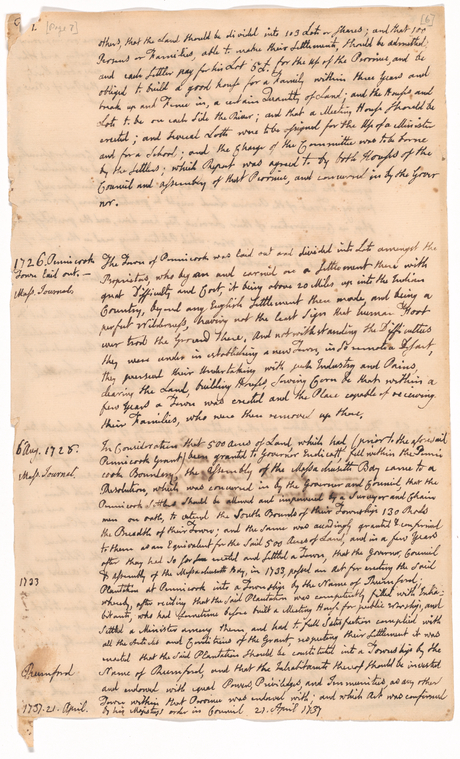 1. [Page 2]
[6]
others, that the Land should be divided into 103 Lots or Shares; and that 100
Persons or Families, able to make their Settlements, should be admitted;
and each Settler pay for his Lot 5£ for the use of the Province, and be
obliged to build a good house for a Family within three Years and
break up and Fence in, a certain Quantity of Land; and the Houses and
Lots to be on each Side the River; and that a Meeting House should be
erected; and several Lotts were to be assigned for the Use of a Minister
and for a School; and the Charge of the Committee was to be borne
by the Settlers; which Report was agreed to by both Houses of the
Council and Assembly of that Province, and concurred in by the Gover
nor.
1726. Pennicook
Town laid out.—
Mass. Journals.
The Town of Pennicook was laid out and divided into Lots amongst the
Proprietors, who began and carried on a Settlement there with
great Difficulty and Cost, it being above 20 Miles up into the Indian
Country, beyond any English Settlement then made, and being a
perfect Wilderness, having not the least Sign that human Foot
ever trod the Ground There, And notwithstanding the Difficulties
they were under in establishing a new Town, in so remote a Desart,
they pursued their Undertaking with such Industry and Pains,
clearing the Land, building Houses Sowing Corn &c that within a
few Years a Town was erected and the Place capable of receiving
their Families, who were then removed up there,
6 Aug. 1728.
Mass. Journal.
In Consideration that 500 Acres of Land, which had (prior to the aforesaid
Pennicook Grant) been granted to Governor Endicott fell within the Penni
cook Boundary, the Assembly of the Massachusetts Bay came to a
Resolution, which was concurred in by the Governor and Council, that the
Pennicook Settlers should be allowed and impowered by a Surveyor and Chain
men on oath, to extend the South Bounds of their Township 130 Rods
the Breadth of their Town; and the Same was accordingly granted & confirmed
to them as an Equivalent for the Said 500 Acres of Land, and in a few Years
after they had So far erected and Settled a Town, that the Governor, Council
1733
& Assembly of the Massachusetts Bay, in 1733, passed an Act for erecting the Said
Plantation at Pennicook into a Township by the Name of Rhumford;
whereby, after reciting that the Said Plantation was competently filled with Inha-
bitants, who had sometime before built a Meeting House for public Worship, and
Settled a Minister among Them and had to full Satisfaction complied with
all the Articles and Conditions of the Grant respecting their Settlement it was
enacted that the Said Plantation should be constituted into a Township by the
Rhumford
Name of Rhumford, and that the Inhabitants thereof Should be invested
and endowed with equal Powers, Priviledges, and Immunities, as any other
Town within that Province was endowed with; and which Act was confirmed
1737. 21. April.
by his Majestys order in Council 21. April 1737